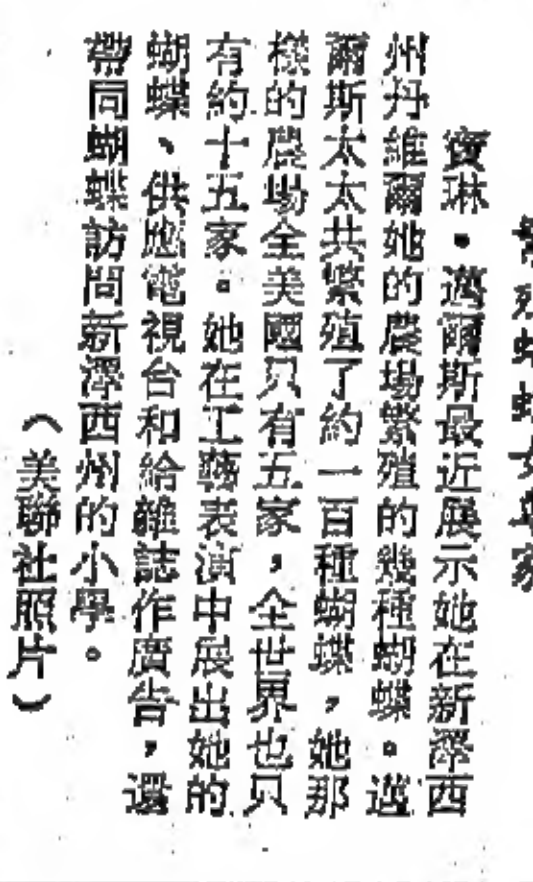 寶琳·邁爾斯最近展示她在新澤西
州丹維爾她的農場繁殖的幾種蝴蝶。邁
爾斯太太共繁殖了約一百種蝴蝶，她那
樣的農場全美國只有五家，全世界也只
有約十五家。她在工藝表演中展出她的
蝴蝶、供應電視台和給雜誌作廣告，還
帶同蝴蝶訪問新澤西州的小學。
（美聯社照片）